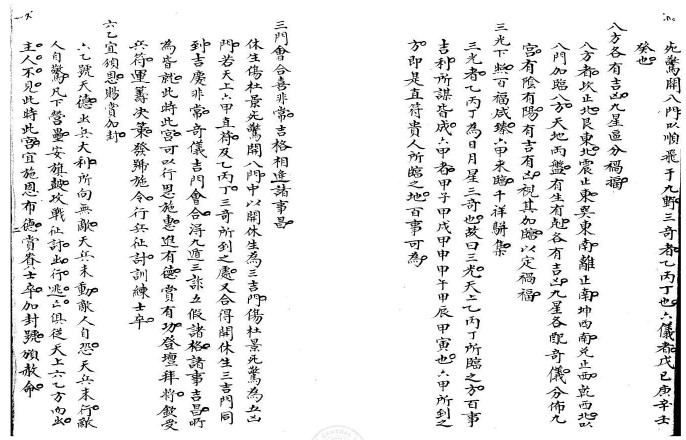 死驚開八門以順飛于九野三奇者乙丙丁也六儀者戊己庚辛壬
癸也
八方各有吉凶九星區分禍福
八方者坎正北艮東北震正東巽東南離正南坤西南兌正西乾西北以
八門加臨八方天地丙盤有生有剋各有吉凶九星各配奇儀分佈九
宮有陰有陽有吉有凶視其加臨以定禍福
三光下照百福咸臻六甲來臨千祥騈集
三光者乙丙丁為日月星三奇也故曰三光天上乙丙丁所臨之方百事
吉利所謀皆成六甲者甲子甲戌甲申甲午甲辰甲寅也六甲所到之
方即是直符貴人所臨之地百事可為
三門會合喜非常吉格相逢諸事昌
休生傷杜景死驚開八門中以開休生為三吉門傷杜景死驚為五凶
門若天上六甲直符及乙丙丁三奇所到之處又合得開休生三吉門同
到吉慶非常奇儀吉門會合得九遁三詐五假諸格諸事吉昌所
為皆就此時此宮可以行恩施惠進有德賞有功登壇拜將欽受
兵符運籌決策發號施令行兵征討訓練士卒
六乙宜頒恩賜賞加封
六乙號天德出兵大利所向無敵天兵未動敵人自恐天兵未行敵
人自驚凡下營壘安旗鼓攻戰征討出行逃亡俱從天上六乙方而出
主人不見此時此宮宜施恩布德賞眷士卒加封號頒赦命